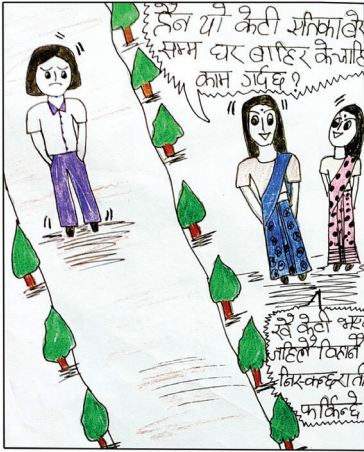 हैन यो केटी रातिकाबेरा
सम्म घर बाहिर के जाहि
काम गर्दछ?
खै केटी भए
जहिले दिउसै
निस्कन्छ राती
फर्किन्छे